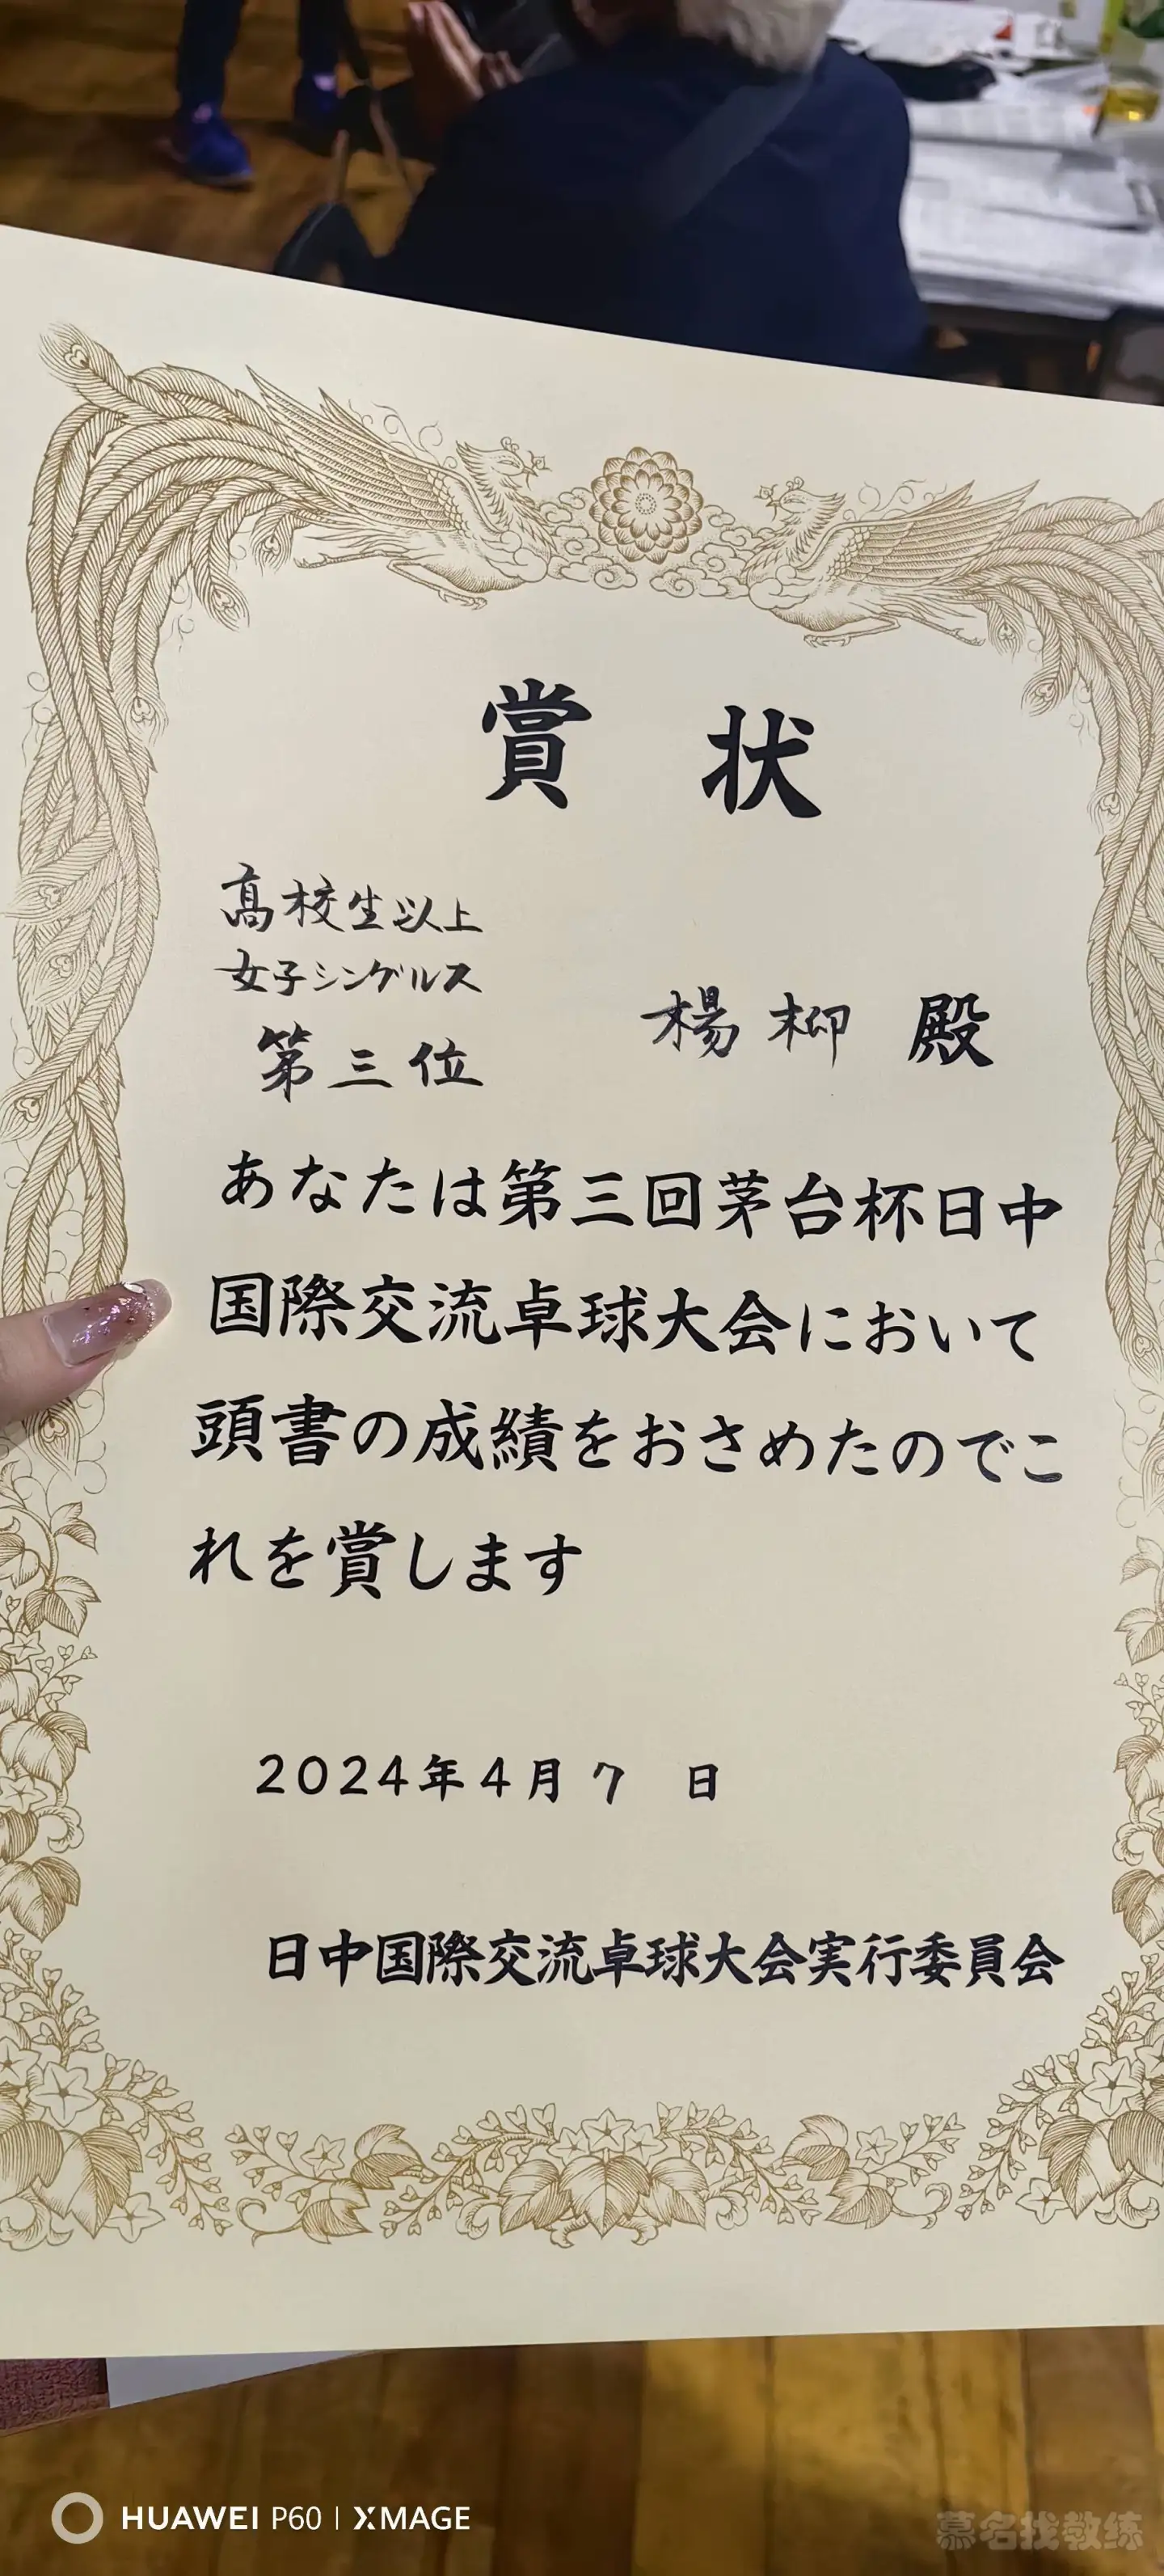 賞 状
高校生以上
女子シングルス
第三位
楊柳 殿
あなたは第三回茅台杯日中
国際交流卓球大会において
頭書の成績をおさめたのでこ
れを賞します
2024年4月7 日
日中国際交流卓球大会実行委員会
HUAWEI P60 | XMAGE
慕名找教练